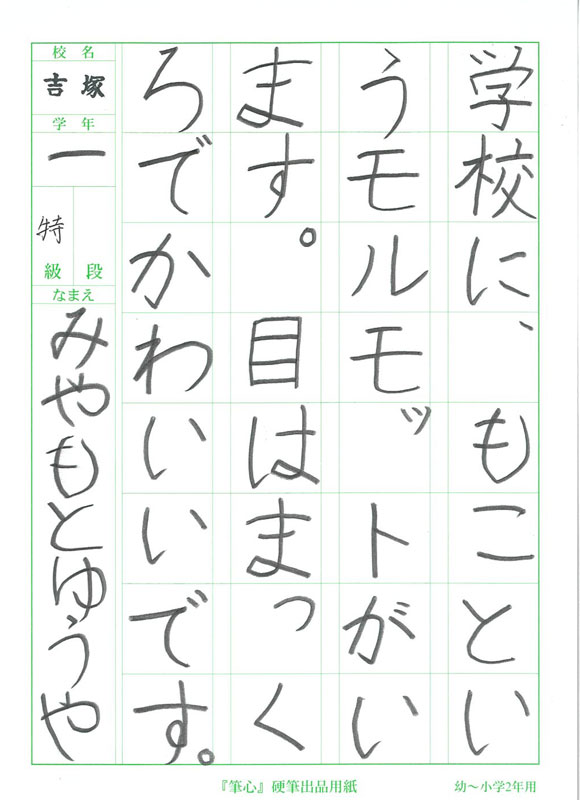 学校に、もことい
うモルモットがい
ます。目はまっく
ろでかわいいです。
校名
吉塚
学年
一
特
級段
なまえ
みやもとゆうや
『筆心』硬筆出品用紙
幼～小学2年用